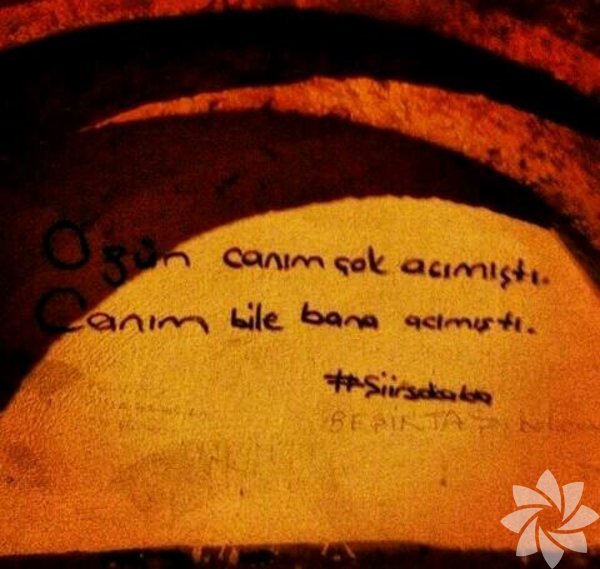 O gün canım çok acımıştı.
Canım bile bana acımıştı.
#Şiirsokakta
BEŞİKTAŞ